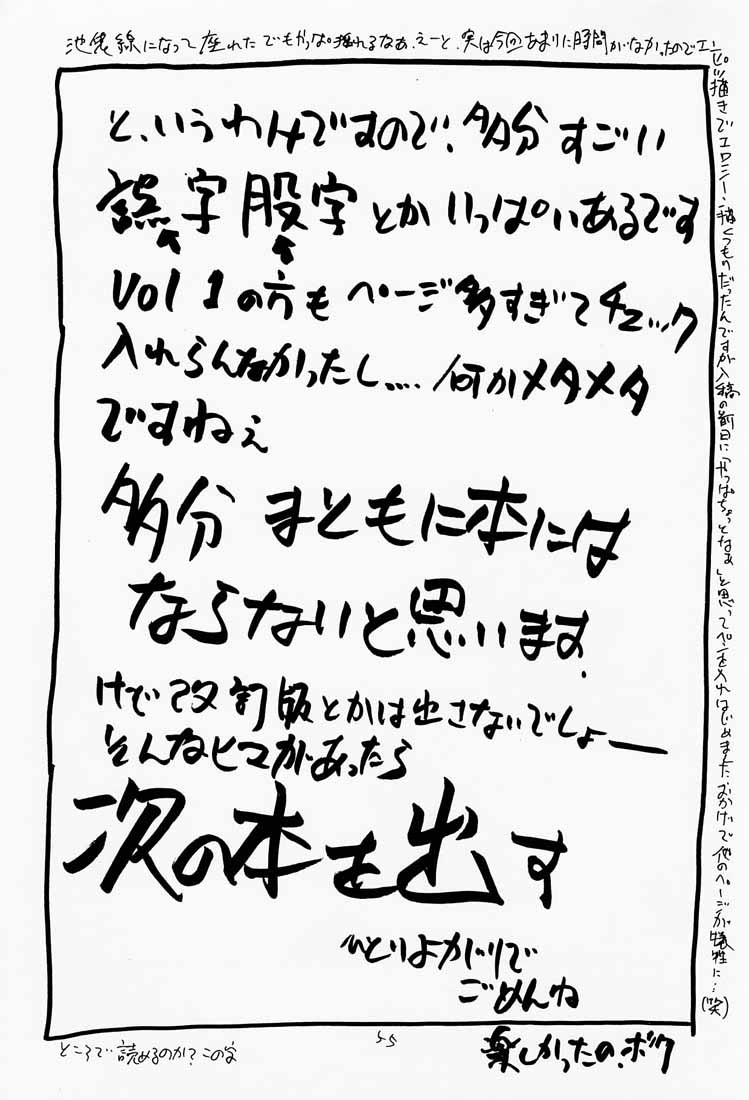 池袋線になって座れた でもやっぱ揺れるなぁ、えーと、実は今回あまりに時間がなかったのでエン
ピツ描きでエロシーン描くつもりだったんですが入稿の前日に「やっぱちょっとなぁ」と思ってペンを入れはじめました。おかげで他のページが犠牲に…(笑)
と、いうわけですので、多分すごい
誤字股字とかいっぱいあるです
Vol 1の方もページ多すぎてチェック
入れらんなかったし…. 何かメタメタ
ですねぇ
多分 まともに本には
ならないと思います.
けど改訂版とかは出さないでしょー
そんなヒマがあったら
次の本を出す
ひとりよがりで
ごめんね
楽しかったの、ボク
ところで読めるのか? この字
55